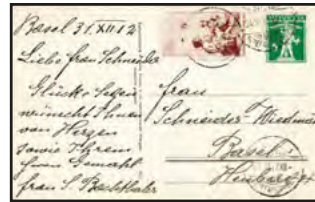 Basel 31.XII.12
Liebe Frau Schneider
Glück & Segen
wünscht Ihnen
von Herzen
sowie Ihrem
Herrn Gemahl
Frau S.
Frau
Schneider-Wiedmer
Basel
Heuberg
HELVETIA